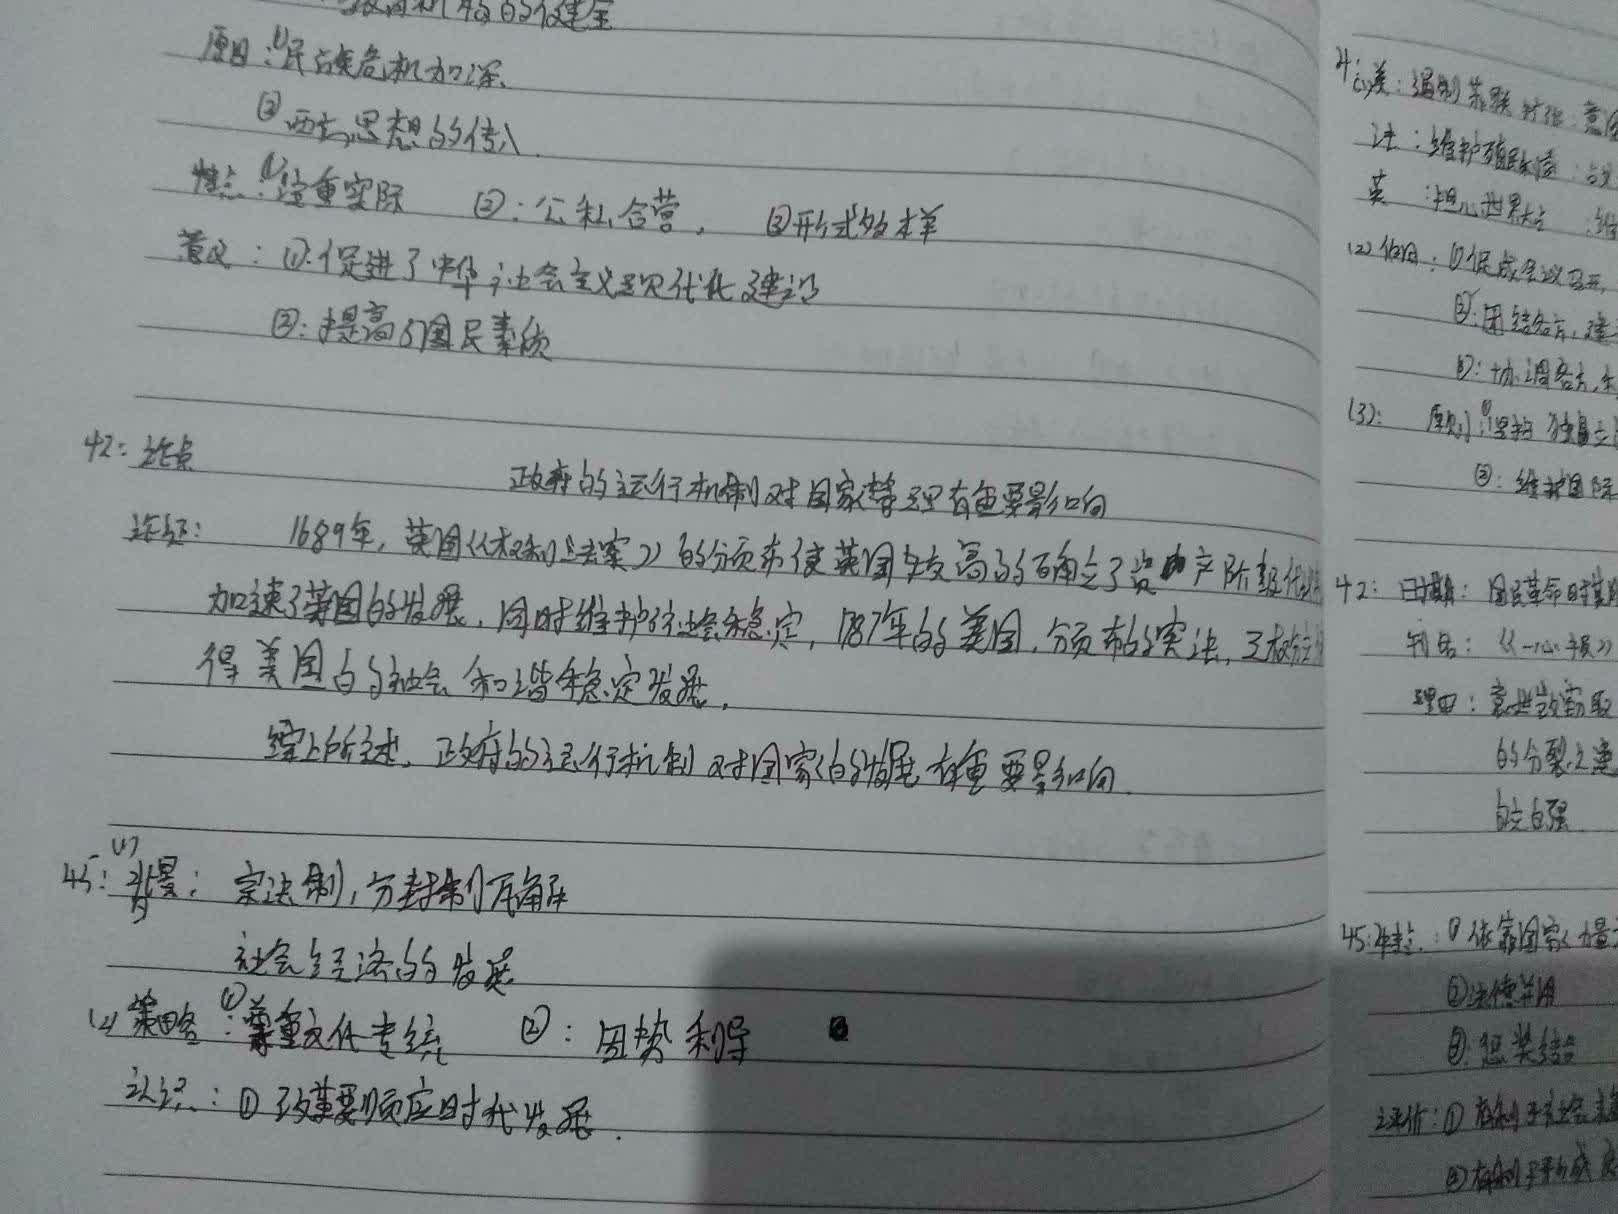 教育机构的健全
原因：①民族危机加深
②西方思想的传入.
特点：①注重实际 ②：公私合营， ③形式多样
意义：①：促进了中华社会主义现代化建设
②：提高了国民素质
42：论点
政府的运行机制对国家管理有重要影响
论证： 1689年，英国《权利法案》的颁布使英国 确立了资产阶级
加速了英国的发展，同时维护了社会稳定，1787年的美国，颁布的宪法，三权分立
得美国的社会和谐稳定发展，
综上所述，政府的运行机制对国家的发展有重要影响.
45：(1)背景：宗法制，分封制瓦解
社会经济的发展
(2)策略：①尊重文化传统 ②：因势利导
认识：①改革要顺应时代发展.
41(1)美：遏制苏联扩张：意
法：维护殖民
英：担心世界大
(2)作用：①促成会议召开，
②：团结各方，建
③：协调各方，
(3)： 原则：①坚持独立
②：维护国际
42：日期：国民革命时期
刊名：《一 》
理由：
的分裂，
自立自强
45：特点：①依靠国家力量
②法德并用
③：惩奖结合
评价：①有利于社会
②有利于形成